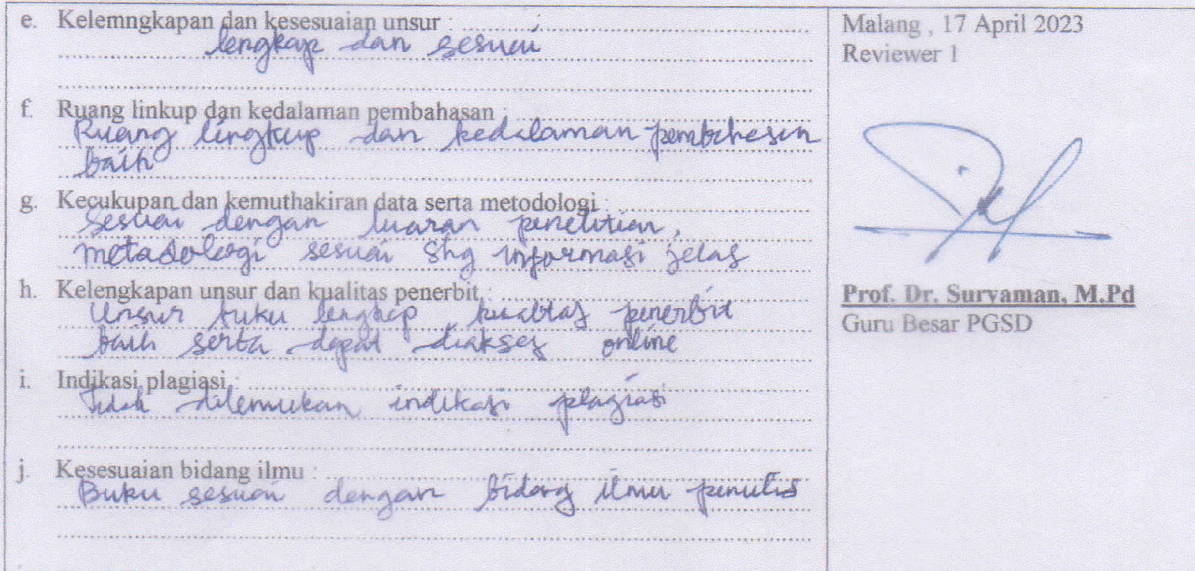 e. Kelemngkapan dan kesesuaian unsur :
lengkap dan sesuai
f. Ruang linkup dan kedalaman pembahasan :
Ruang lingkup dan kedalaman pembahasan
baik
g. Kecukupan dan kemuthakiran data serta metodologi :
Sesuai dengan luaran penelitian,
metodologi sesuai shg informasi jelas
h. Kelengkapan unsur dan kualitas penerbit :
Unsur buku lengkap kualitas penerbit
baik serta dapat diakses online
i. Indikasi plagiasi :
Tidak ditemukan indikasi plagiasi
j. Kesesuaian bidang ilmu :
Buku sesuai dengan bidang ilmu penulis
Malang , 17 April 2023
Reviewer 1
Prof. Dr. Suryaman, M.Pd
Guru Besar PGSD